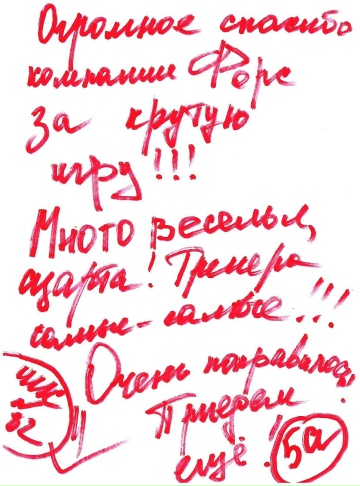 Огромное спасибо
компании Форс
За крутую
игру!!!
Много веселья,
азарта! Тренера
самые-самые!!!
Очень понравилось!
Приедем
ещё!
шк
82
5а